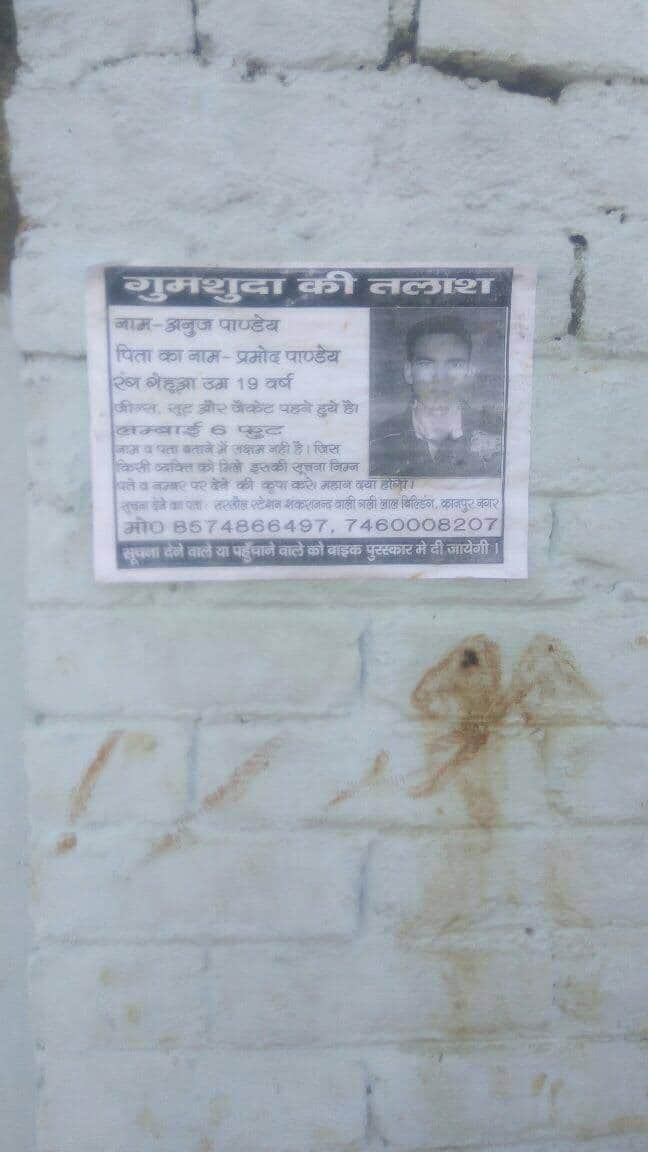 गुमशुदा की तलाश
नाम-अनुज पाण्डेय
पिता का नाम- प्रमोद पाण्डेय
रंग गेहूआ उम्र 19 वर्ष
जीन्स, सूट और जैकेट पहने हुये है।
लम्बाई 6 फुट
नाम व पता बताने में सक्षम नही है। जिस
किसी व्यक्ति को मिले इसकी सूचना निम्न
पते व नम्बर पर देने की कृपा करें। महान दया होगी।
सूचना देने का पता : स्टेशन वाली गली लाल बिल्डिंग, कानपुर नगर
मो0 8574866497, 7460008207
सूचना देने वाले या पहुँचाने वाले को बाइक पुरस्कार मे दी जायेगी।